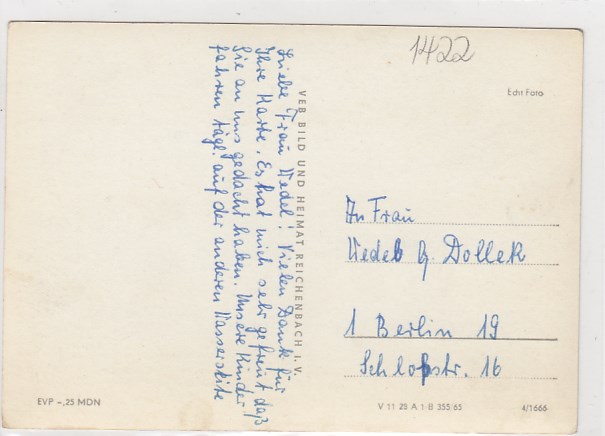 1422
Echt Foto
Liebe Frau Wedel! Vielen Dank für
Ihre Karte. Es hat mich sehr gefreut daß
Sie an uns gedacht haben. Unsere Kinder
fahren tägl. auf der anderen Wasserseite
VEB BILD UND HEIMAT REICHENBACH I. V.
An Frau
Wedel b. Dollek
1 Berlin 19
Schloßstr. 16
EVP -,25 MDN
V 11 28 A 1 B 355/65
4/1666